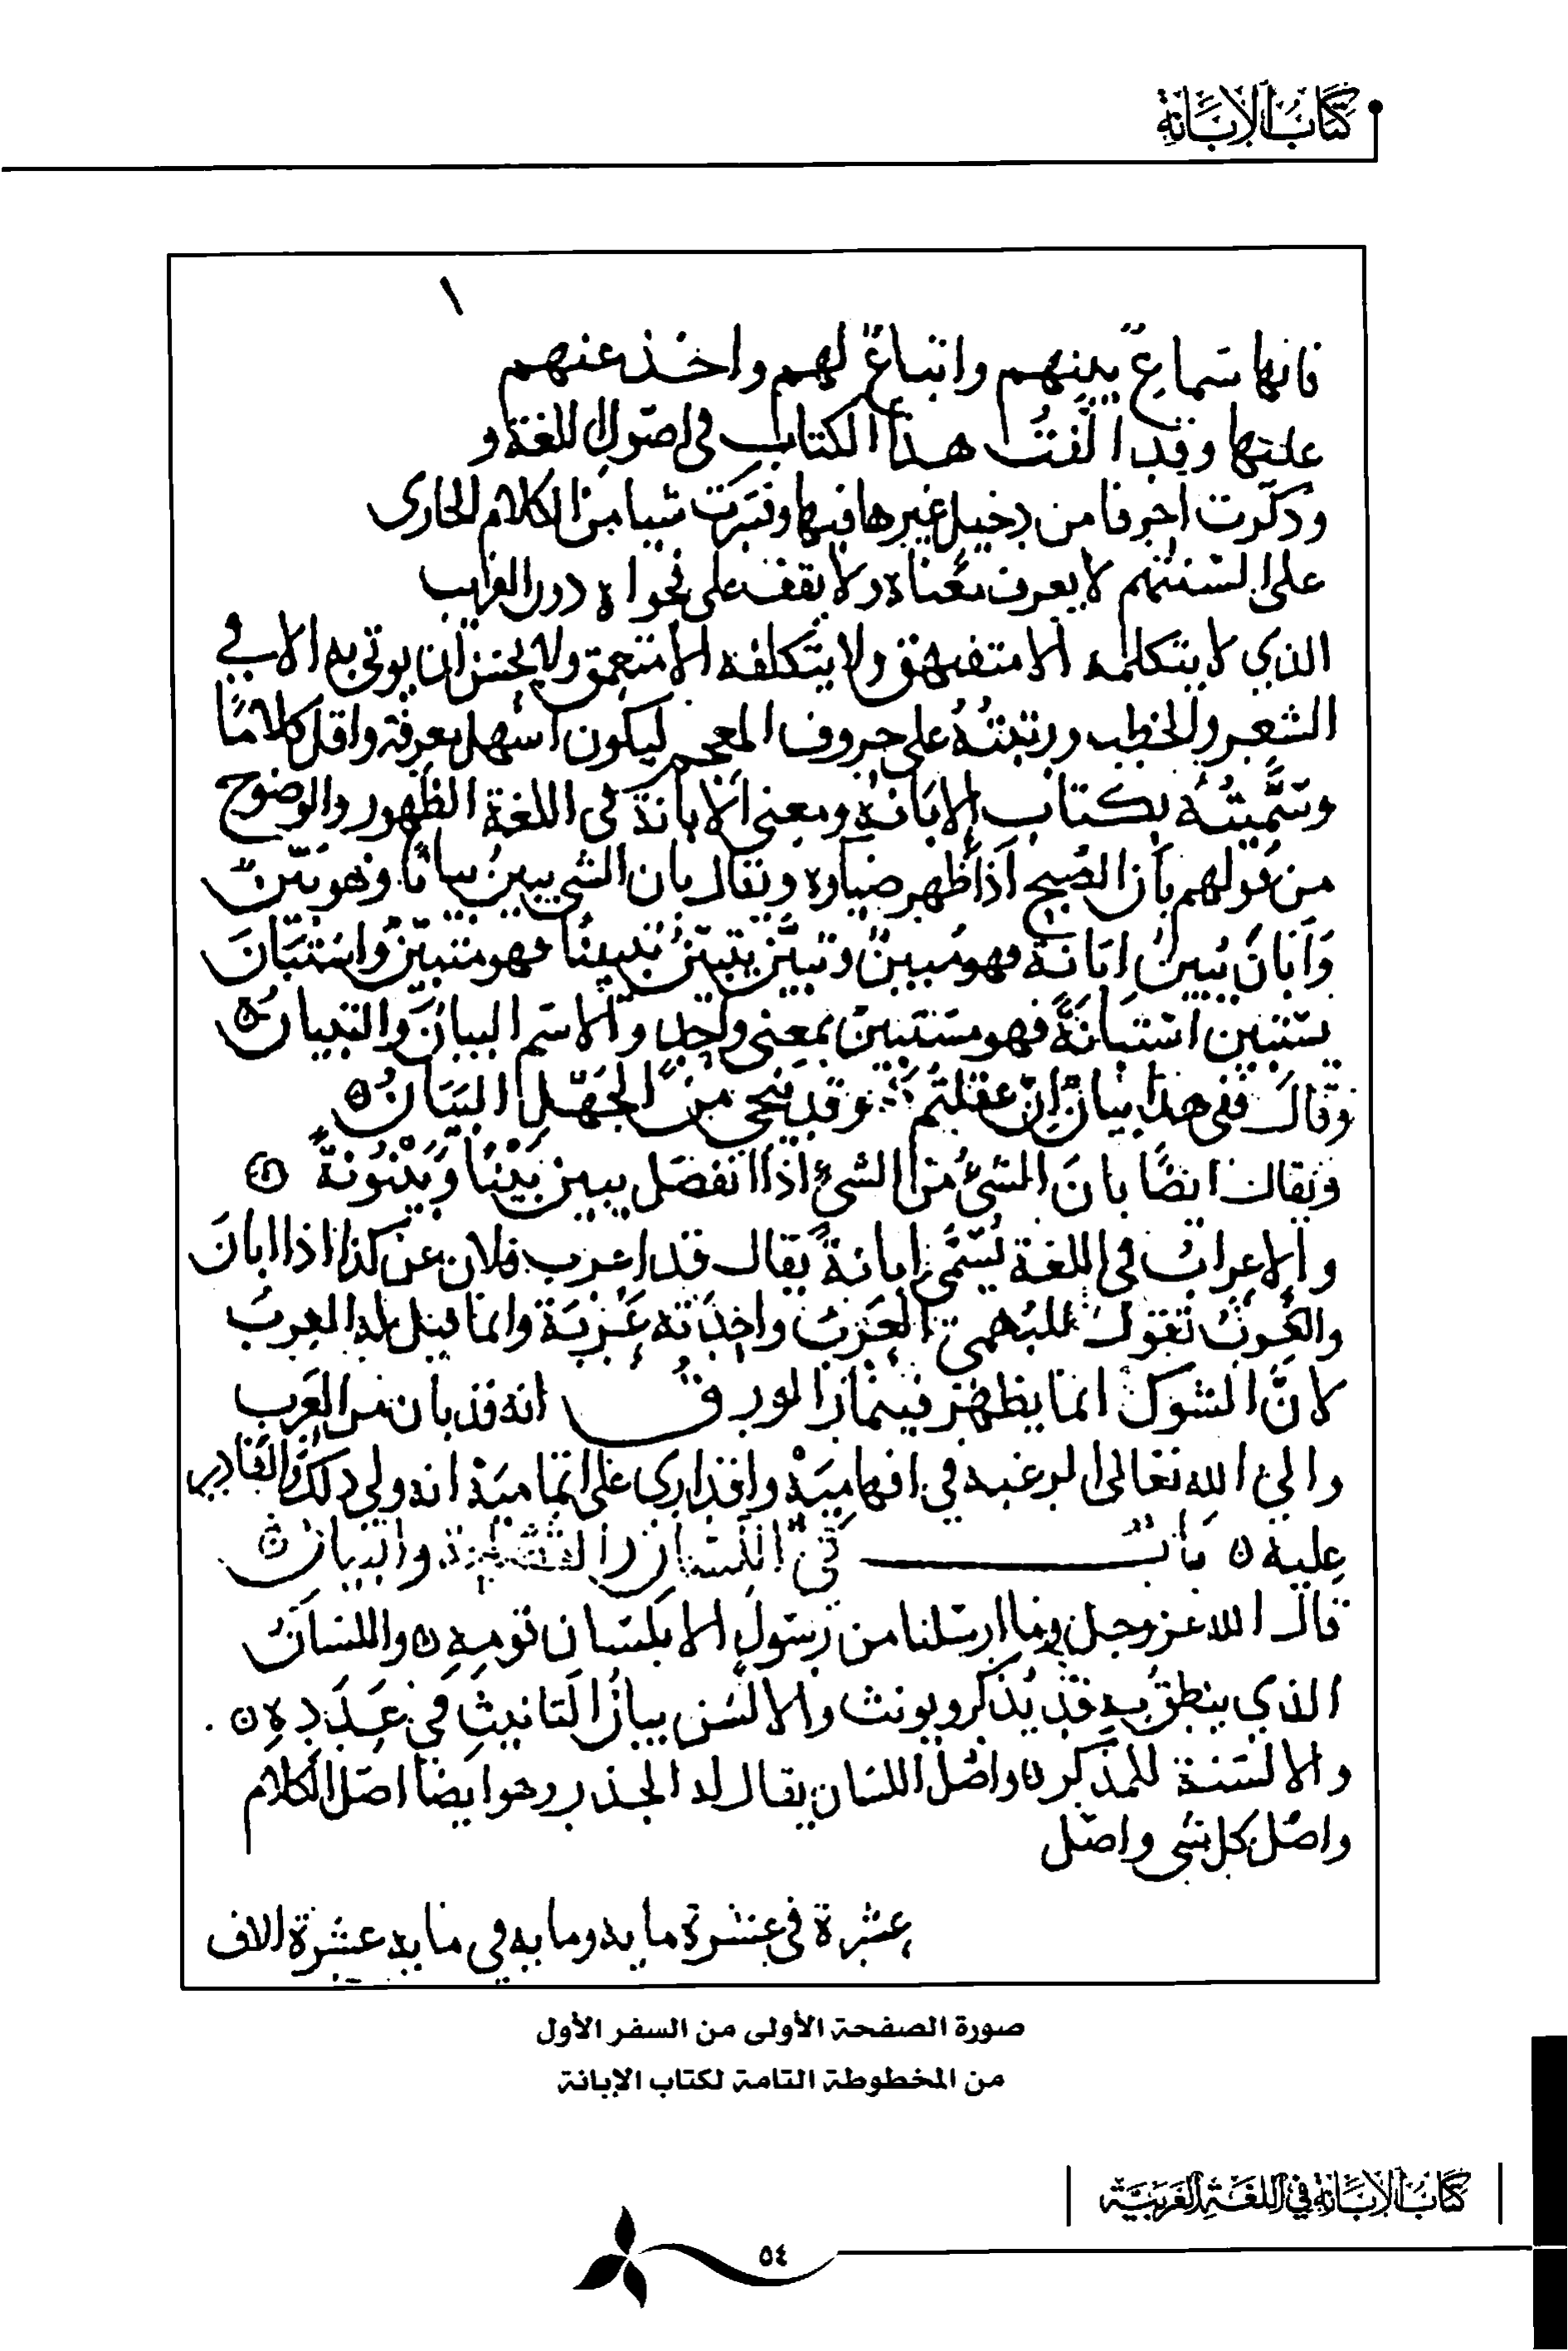 كتاب الإبانة
١
فانها سماع بينهم واتباع لهم واخذ عنهم
علتها وقد الفت هذا الكتاب في اصول اللغة و
وذكرت احرفا من دخيل غيرها فيها وفسرت شيا من الكلام الجارى
على السنتهم لا يعرف معناه ولا يقف على فحواه دون الغريب
الذي لا يتكلمه الا متفيهق ولا يتكلفه الا متعمق ولا يحسن ان يوتى به الا في
الشعر والخطب ورتبته على حروف المعجم ليكون اسهل معرفة واقل كلامًا
وسَمَّيتُه بكتاب الإبَانة ومعنى الابانة في اللغة الظهور والوضوح
من قولهم بان الصبح اذا ظهر ضياوه ويقال بان الشي يبين بيانًا وهو بَيّن
وَأبَانَ يُبينُ ابانة فهو مُبين وتبيَّن يتبيّن تبيينًا فهو متبيّن واسْتَبَانَ
يستبين استبانةً فهو مستبين بمعنى واحد والاسم البيان والتبيان ۞
وقال ففي هذا بيان إن عقلتم ؞ وقد ينجي من الجَهْل البيَان ۞
ويقال ايضًا بانَ الشئ من الشئ اذا انفصل يبين بَيْنًا وَبَيْنُونَةً ۞
والإعراب في اللغة يُسَمّى إبانةً يقال قد اعرب فلان عن كذا اذا ابان
والعَرب تقول للبُهمى العرب واحدته عَربة وانما قيل له العرب
لانَّ الشوك انما يظهر فيتماز الورق انه قد بان من العرب
والى الله تعالى الرغبه في افهاميه واقداري على اتماميه انه ولي ذلك والقادر
عليه ۞ باب في اللسان والفصاحة والبيان ۞
قال الله عز وجل وما ارسلنا من رسول الا بلسان قومه ۞ واللسان
الذي ينطق به قد يُذكر ويونث والالسُن بيان التانيث في عَدَدِه ۞
والالسنة للمذكر ۞ واصل اللسان يقال له الجذر وهو ايضا اصل الكلام
واصل كل شي واصل
عشرة في عشرة مايه ومايه في مايه عشرة الاف
صورة الصفحة الأولى من السفر الأول
من المخطوطة التامة لكتاب الإبانة
كتاب الإبانة في اللغة العربية
٥٤